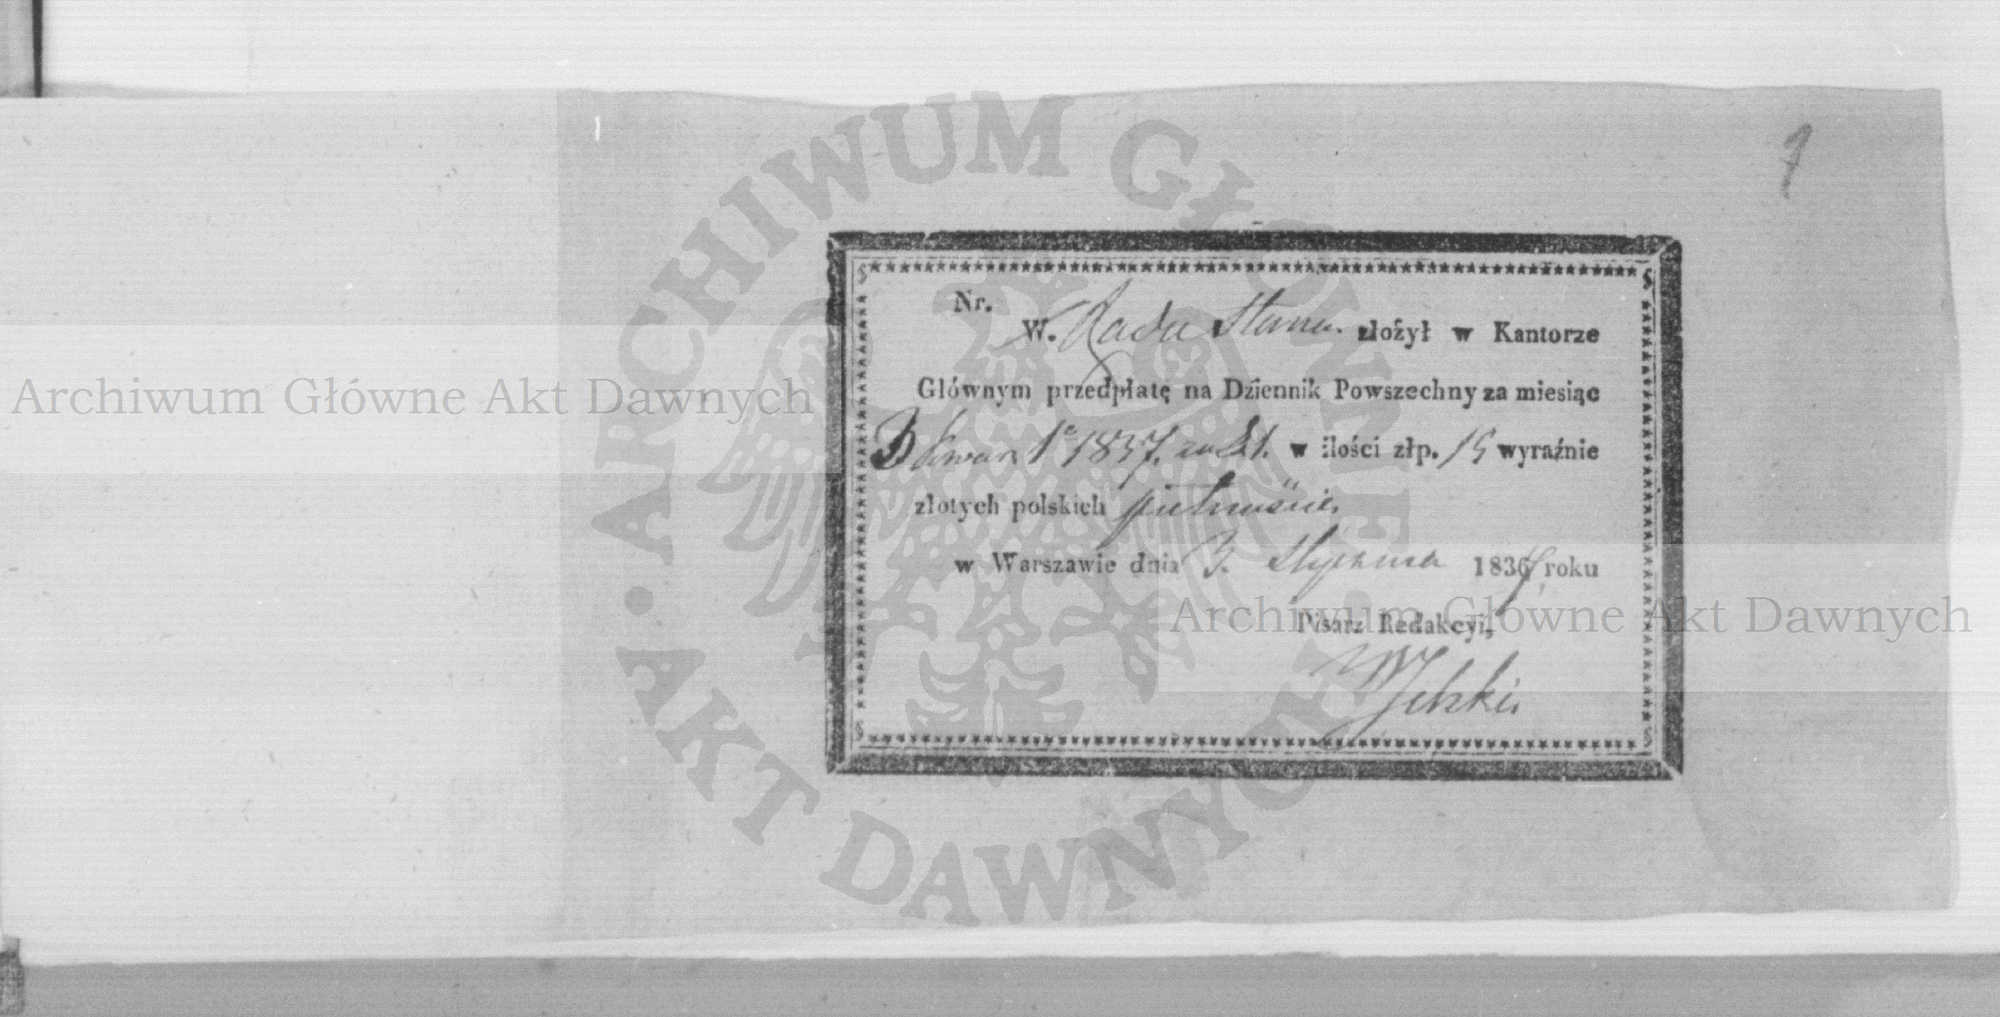 Nr.
W. Rada Stanu. złożył w Kantorze
Głównym przedpłatę na Dziennik Powszechny za miesiąc
3 kwar. 1837. w ilości złp. 15 wyraźnie
złotych polskich piętnaście.
w Warszawie dnia 3. Stycznia 1837 roku
Pisarz Redakcyi,
ARCHIWUM GŁÓWNE
AKT DAWNYCH
Archiwum Główne Akt Dawnych
Archiwum Główne Akt Dawnych